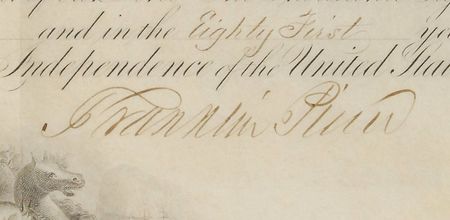 and in the Eighty First ye
Independence of the United Stat
Franklin Pierce